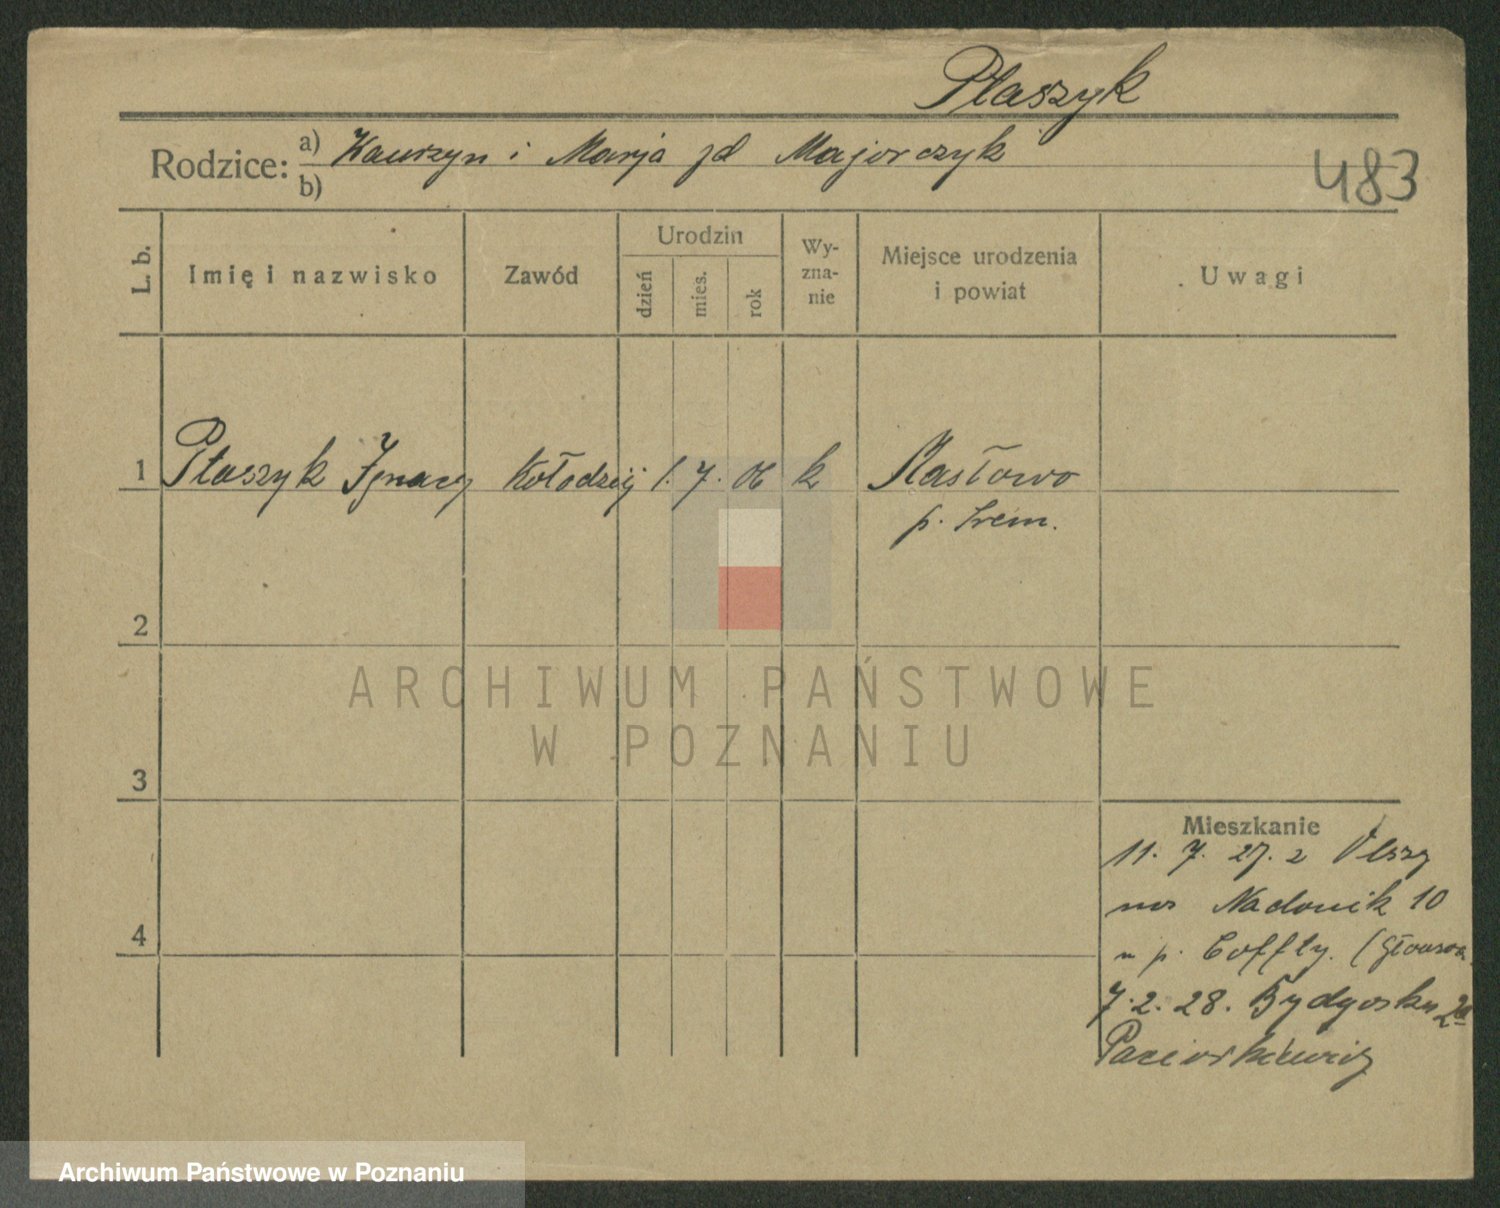 Ptaszyk
Rodzice: a) Wawrzyn i Marja zd Majorczyk
483
b)
L. b.
Imię i nazwisko
Zawód
Urodzin
dzień
mies.
rok
Wy-
zna-
nie
Miejsce urodzenia
i powiat
Uwagi
1 Ptaszyk Ignacy Kołodziej 1. 7. 06 k Masłowo
p. Śrem.
2
ARCHIWUM PAŃSTWOWE
W POZNANIU
3
Mieszkanie
11. 7. 27. z
Nadolnik 10
4
u p.
7. 2. 28. Bydgoska
Paciorkiewicz
Archiwum Państwowe w Poznaniu